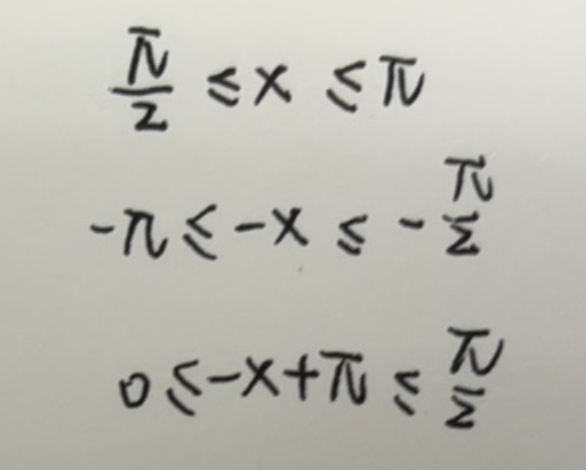 π/2 ≤ x ≤ π
-π ≤ -x ≤ -π/2
0 ≤ -x+π ≤ π/2